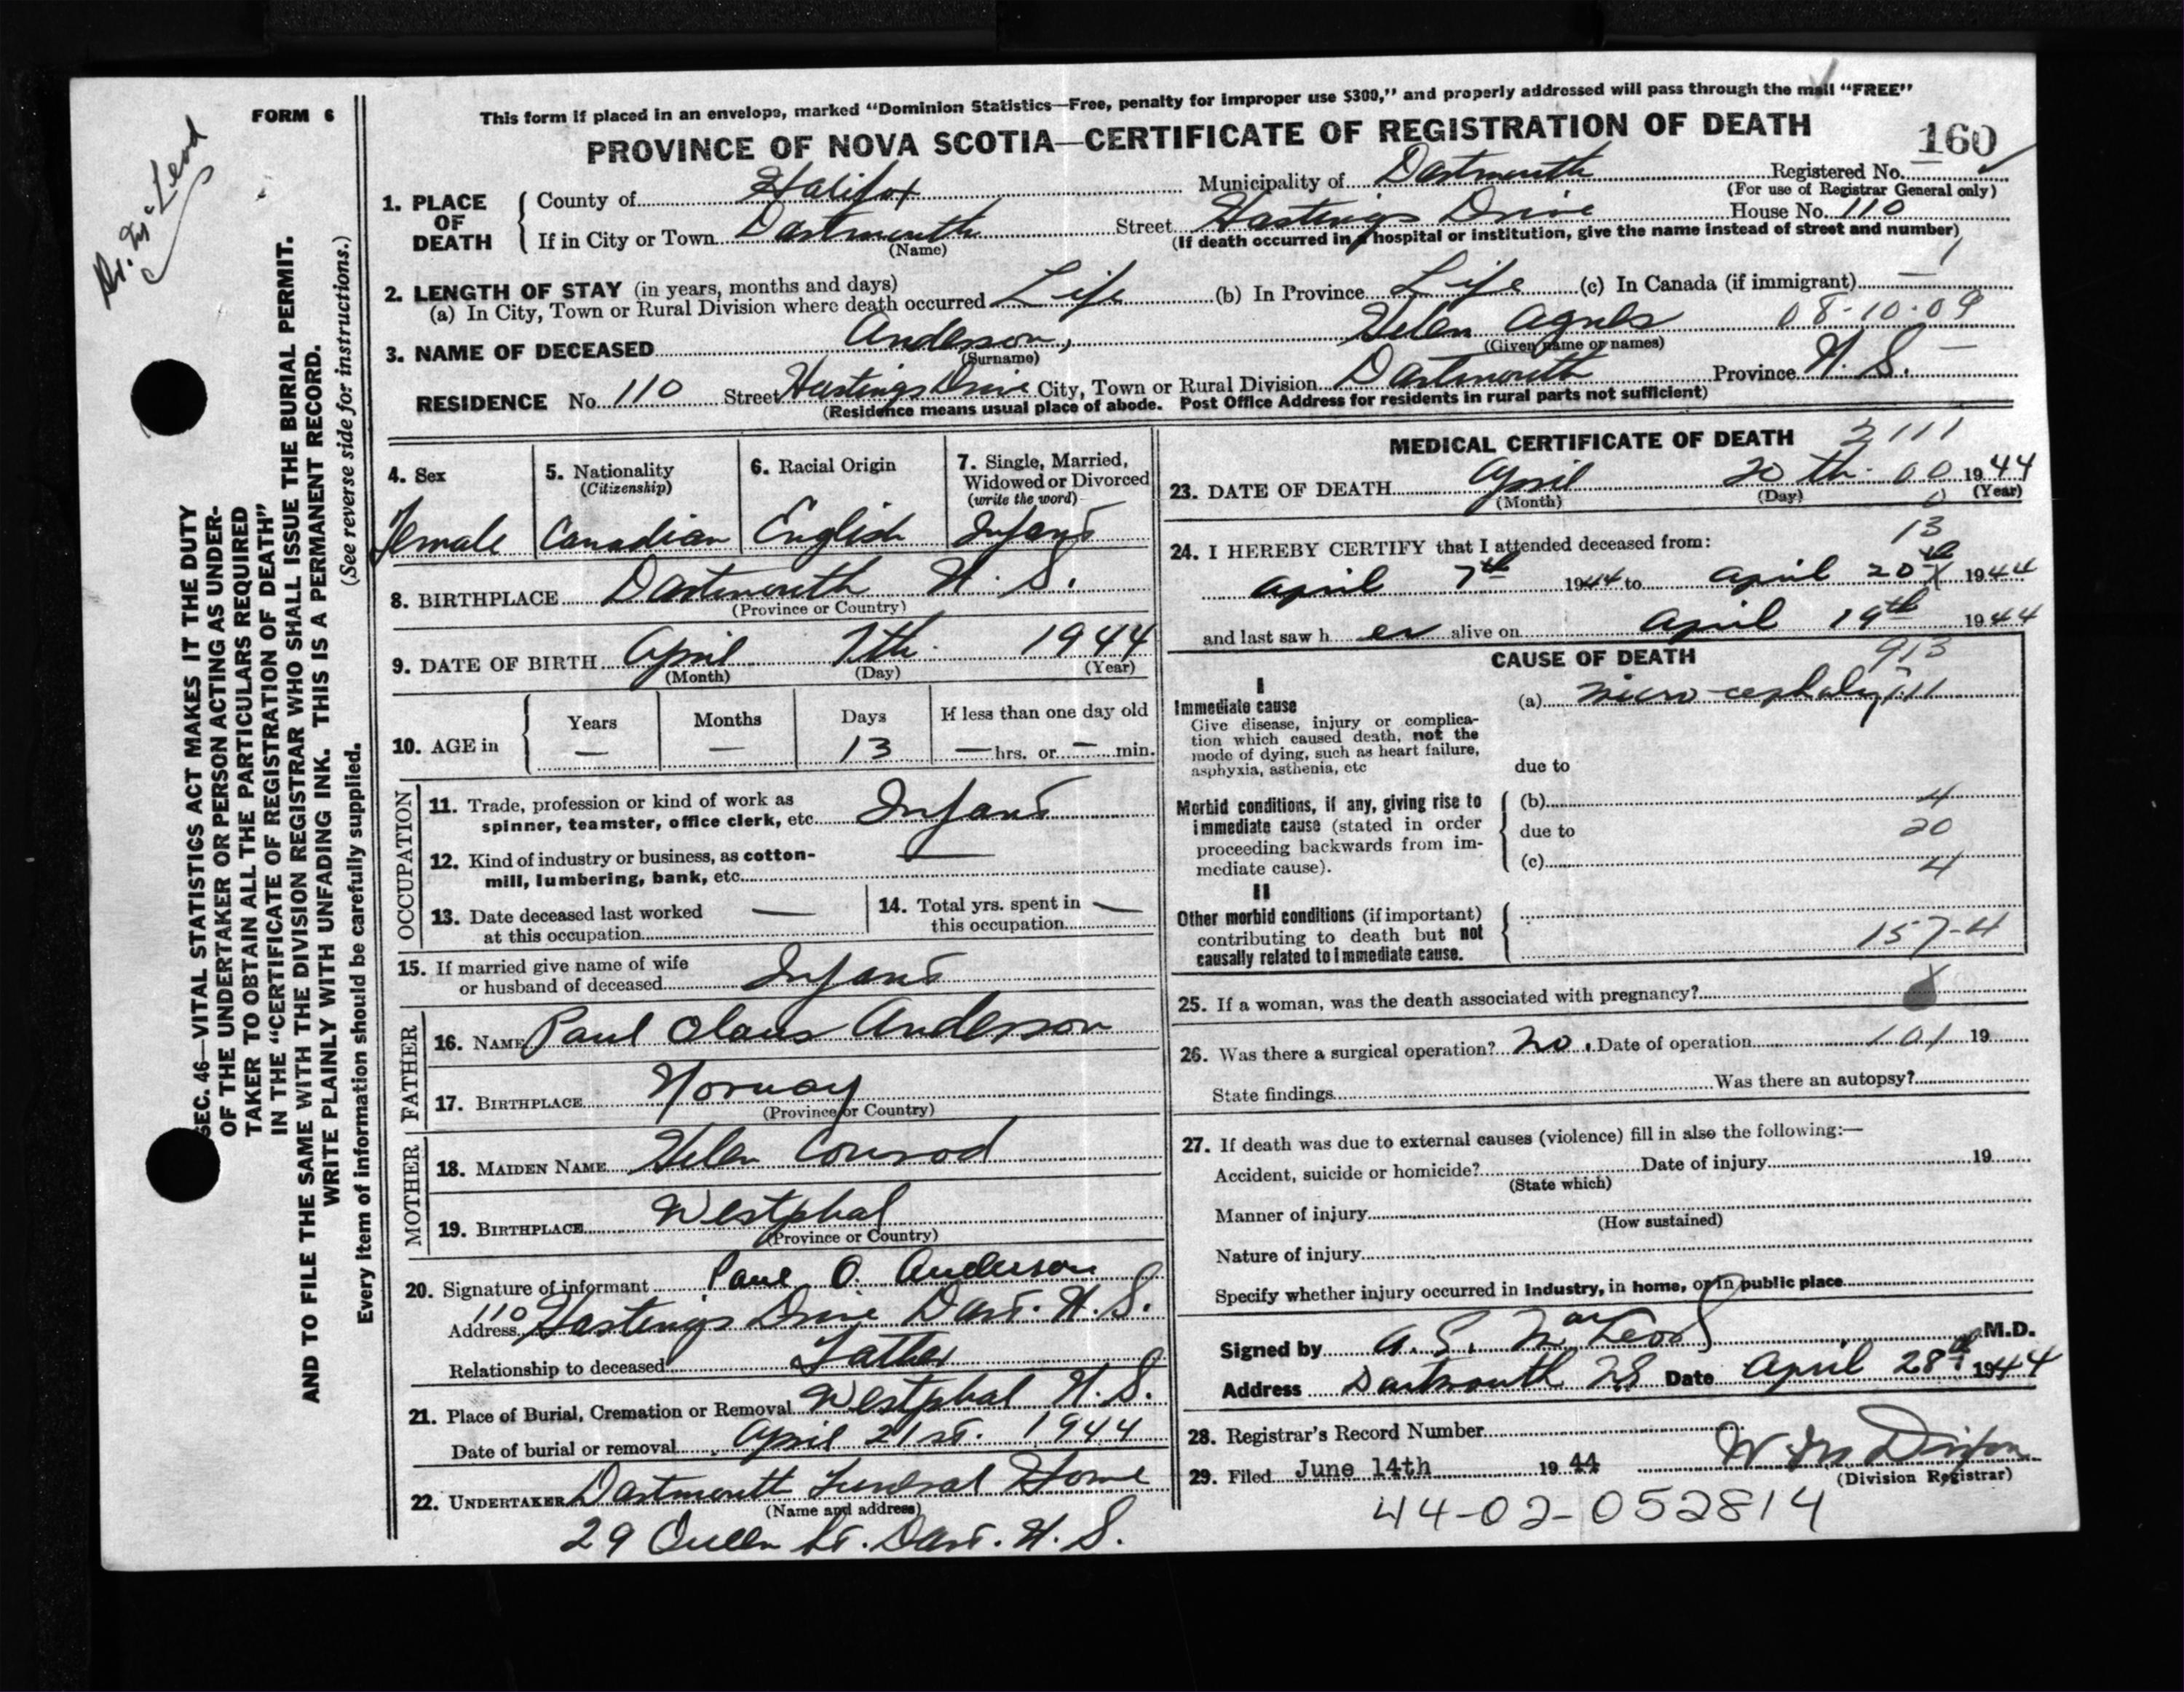 This form if placed in an envelope, marked “Dominion Statistics—Free, penalty for improper use $300,” and properly addressed will pass through the mail “FREE”
FORM 6
PROVINCE OF NOVA SCOTIA—CERTIFICATE OF REGISTRATION OF DEATH
160
Dr. McLeod
SEC. 46—VITAL STATISTICS ACT MAKES IT THE DUTY
OF THE UNDERTAKER OR PERSON ACTING AS UNDER-
TAKER TO OBTAIN ALL THE PARTICULARS REQUIRED
IN THE “CERTIFICATE OF REGISTRATION OF DEATH”
AND TO FILE THE SAME WITH THE DIVISION REGISTRAR WHO SHALL ISSUE THE BURIAL PERMIT.
WRITE PLAINLY WITH UNFADING INK. THIS IS A PERMANENT RECORD.
Every item of information should be carefully supplied. (See reverse side for instructions.)
Registered No.
(For use of Registrar General only)
1. PLACE OF DEATH
County of Halifax Municipality of Dartmouth
If in City or Town Dartmouth Street Hastings Drive House No. 110
(Name) (If death occurred in a hospital or institution, give the name instead of street and number)
2. LENGTH OF STAY (in years, months and days)
(a) In City, Town or Rural Division where death occurred Life (b) In Province Life (c) In Canada (if immigrant) —
08-10-09
3. NAME OF DECEASED Anderson, Helen Agnes
(Surname) (Given name or names)
RESIDENCE No. 110 Street Hastings Drive City, Town or Rural Division Dartmouth Province N. S. —
(Residence means usual place of abode. Post Office Address for residents in rural parts not sufficient)
4. Sex
Female
5. Nationality
(Citizenship)
Canadian
6. Racial Origin
English
7. Single, Married,
Widowed or Divorced
(write the word)
Infant
8. BIRTHPLACE Dartmouth N. S.
(Province or Country)
9. DATE OF BIRTH April 7th. 1944
(Month) (Day) (Year)
10. AGE in
Years —
Months —
Days 13
If less than one day old
— hrs. or — min.
OCCUPATION
11. Trade, profession or kind of work as
spinner, teamster, office clerk, etc. Infant
12. Kind of industry or business, as cotton- —
mill, lumbering, bank, etc.
13. Date deceased last worked —
at this occupation
14. Total yrs. spent in —
this occupation
15. If married give name of wife
or husband of deceased Infant
FATHER
16. NAME Paul Olaus Anderson
17. BIRTHPLACE Norway
(Province or Country)
MOTHER
18. MAIDEN NAME Helen Conrod
19. BIRTHPLACE Westphal
(Province or Country)
20. Signature of informant Paul O. Anderson
Address 110 Hastings Drive Dart. N. S.
Relationship to deceased Father
21. Place of Burial, Cremation or Removal Westphal N. S.
Date of burial or removal April 21st. 1944
22. UNDERTAKER Dartmouth Funeral Home
(Name and address)
29 Queen St. Dart. N. S.
MEDICAL CERTIFICATE OF DEATH
2111
23. DATE OF DEATH April 20th. 00 1944
(Month) (Day) (Year)
0
13
24. I HEREBY CERTIFY that I attended deceased from:
April 7th 1944 to April 20th 1944
and last saw her alive on April 19th 1944
CAUSE OF DEATH
913
I
Immediate cause
Give disease, injury or complica-
tion which caused death, not the
mode of dying, such as heart failure,
asphyxia, asthenia, etc
(a) micro-cephaly
due to
Morbid conditions, if any, giving rise to
immediate cause (stated in order
proceeding backwards from im-
mediate cause).
(b) 4
due to 20
(c) 4
II
Other morbid conditions (if important)
contributing to death but not
causally related to immediate cause.
157-4
25. If a woman, was the death associated with pregnancy?
26. Was there a surgical operation? No. Date of operation 101 19
State findings Was there an autopsy?
27. If death was due to external causes (violence) fill in also the following:—
Accident, suicide or homicide? Date of injury 19
(State which)
Manner of injury
(How sustained)
Nature of injury
Specify whether injury occurred in industry, in home, or in public place
Signed by A. S. MacLeod M.D.
Address Dartmouth NS Date April 28th 1944
28. Registrar's Record Number
29. Filed June 14th 1944
(Division Registrar)
44-02-052814